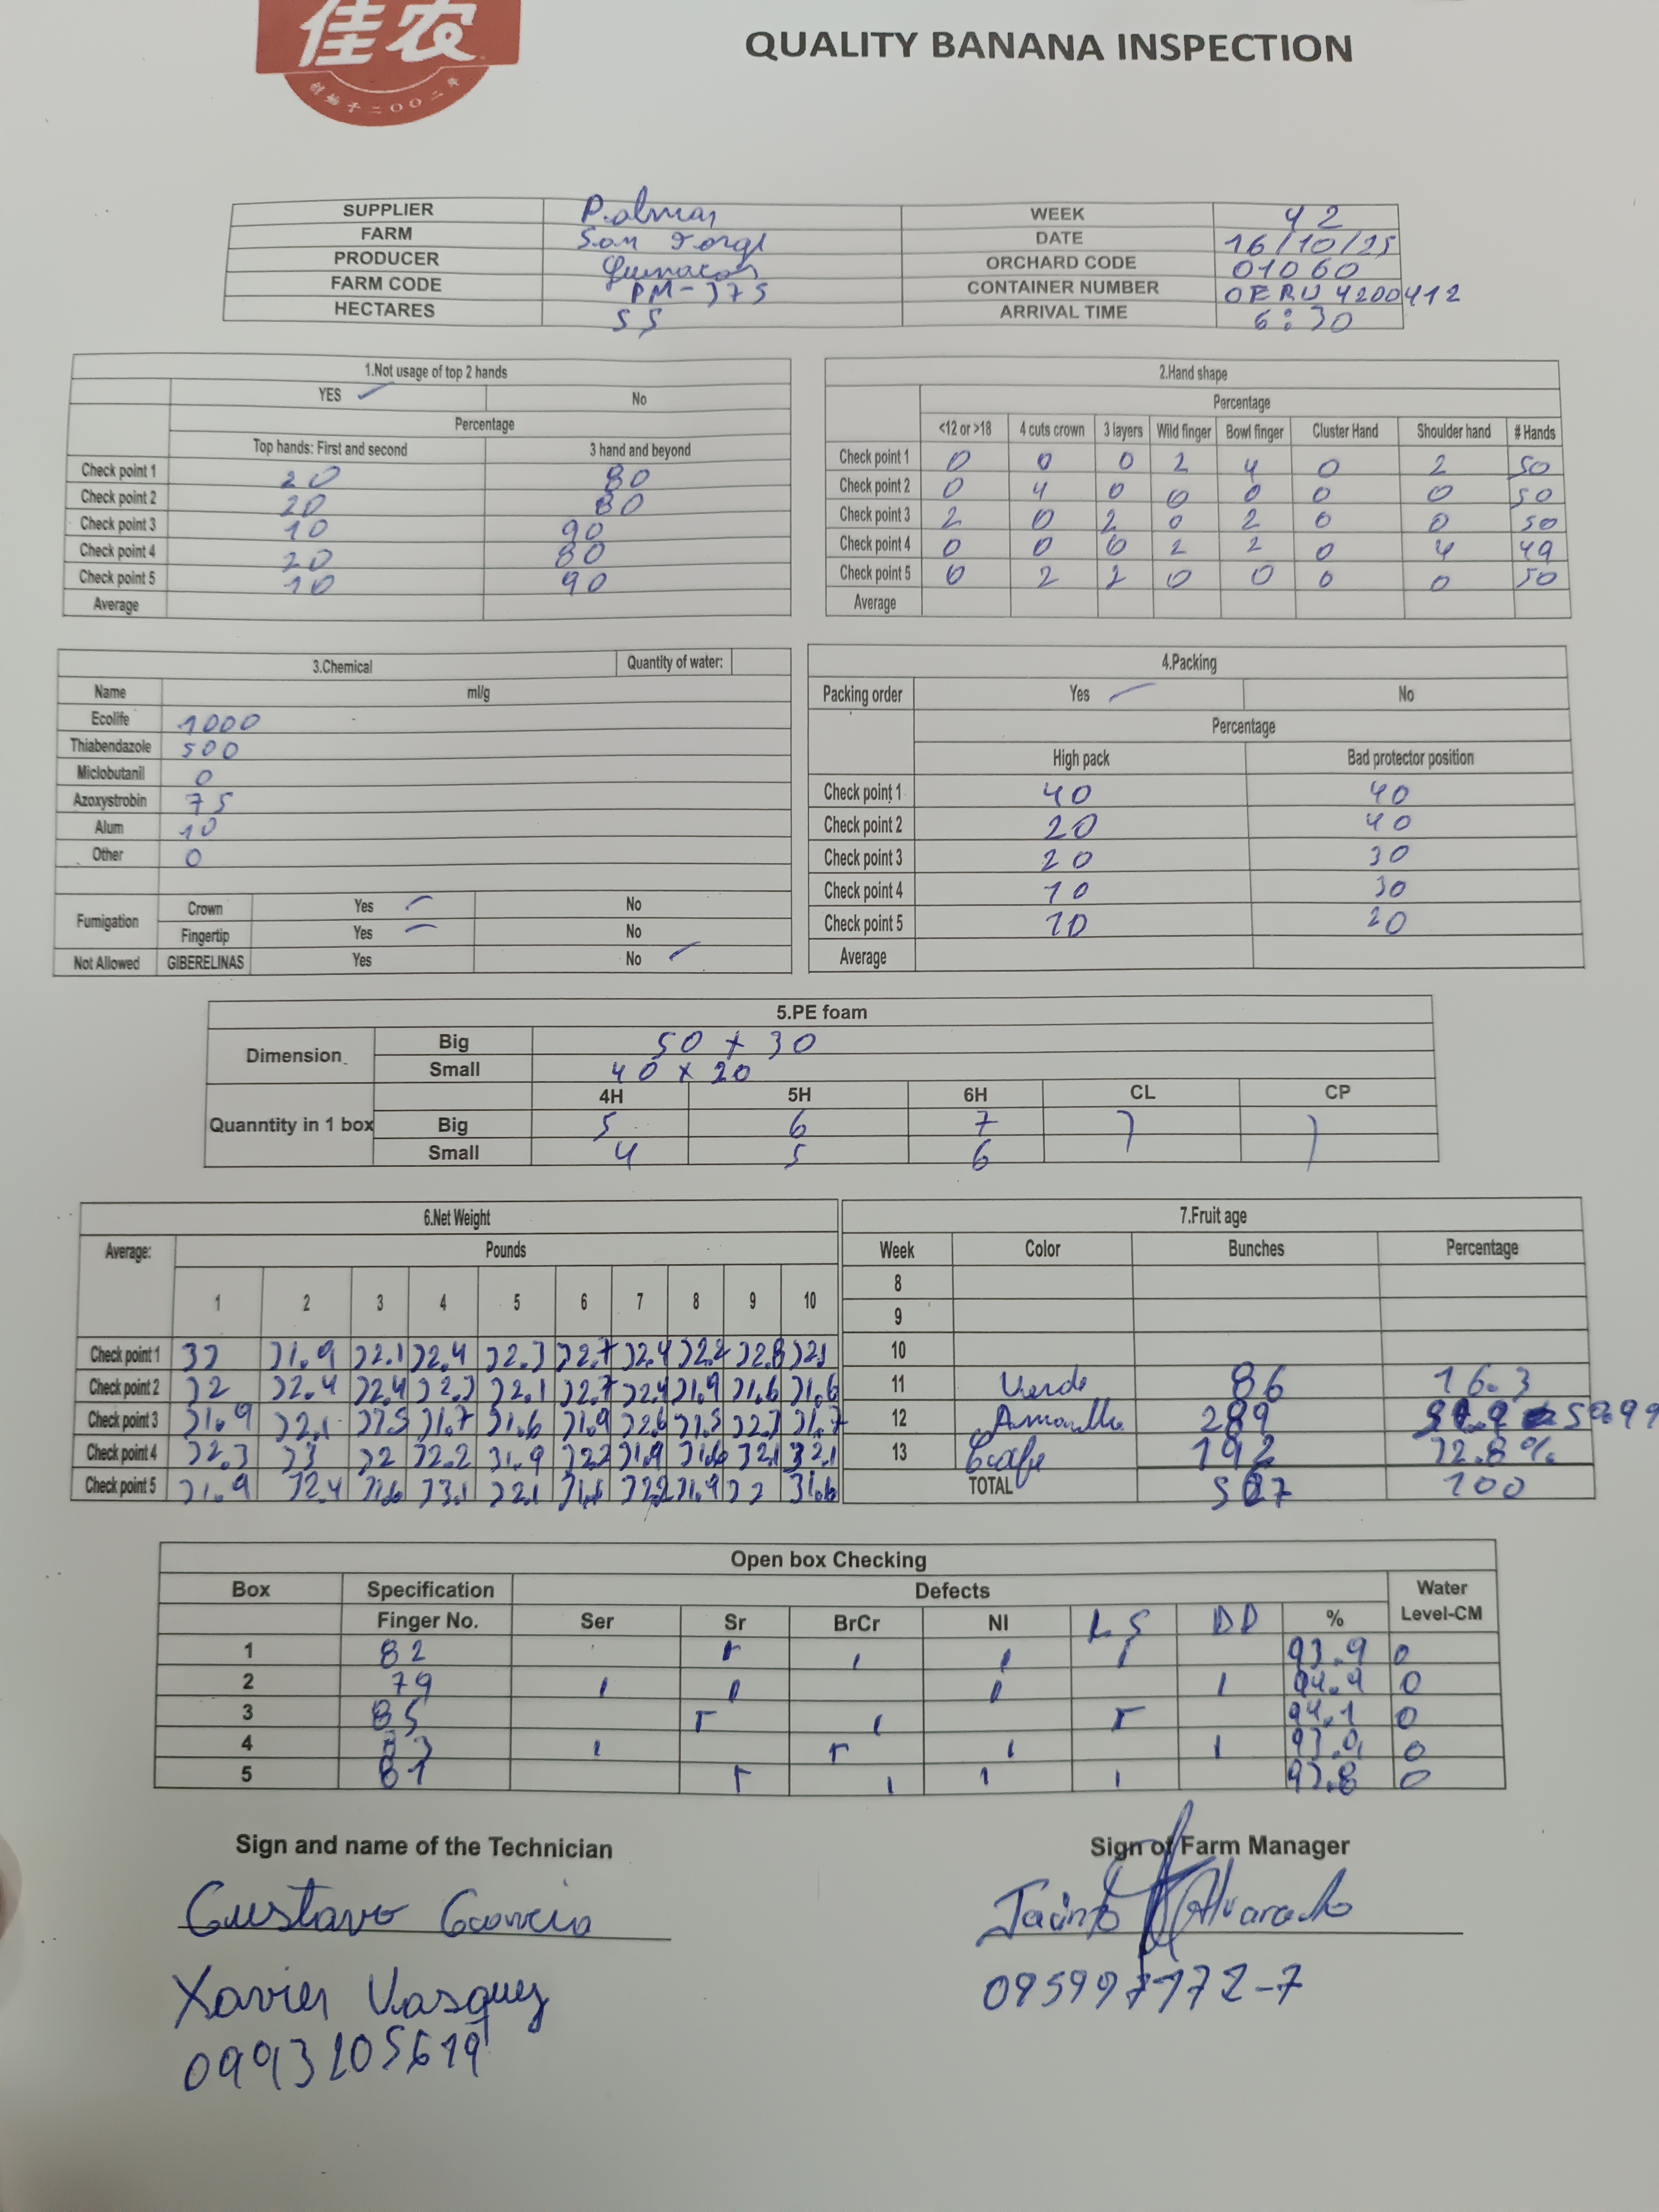 佳农
创始于二〇〇二年
QUALITY BANANA INSPECTION
SUPPLIER Palmar WEEK 42
FARM San Jorge DATE 16/10/25
PRODUCER ORCHARD CODE 01060
FARM CODE PM-375 CONTAINER NUMBER OERU4200412
HECTARES 55 ARRIVAL TIME 6:30
1.Not usage of top 2 hands
YES ✓ No
Percentage
Top hands: First and second 3 hand and beyond
Check point 1 20 80
Check point 2 20 80
Check point 3 10 90
Check point 4 20 80
Check point 5 10 90
Average
2.Hand shape
Percentage
<12 or >18 4 cuts crown 3 layers Wild finger Bowl finger Cluster Hand Shoulder hand # Hands
Check point 1 0 0 0 2 4 0 2 50
Check point 2 0 4 0 0 0 0 0 50
Check point 3 2 0 2 0 2 0 0 50
Check point 4 0 0 0 2 2 0 4 49
Check point 5 0 2 2 0 0 0 0 50
Average
3.Chemical Quantity of water:
Name ml/g
Ecolife 1000
Thiabendazole 500
Miclobutanil 0
Azoxystrobin 75
Alum 10
Other 0
Fumigation Crown Yes ✓ No
Fingertip Yes ✓ No
Not Allowed GIBERELINAS Yes No ✓
4.Packing
Packing order Yes ✓ No
Percentage
High pack Bad protector position
Check point 1 40 40
Check point 2 20 40
Check point 3 20 30
Check point 4 10 30
Check point 5 10 20
Average
5.PE foam
Dimension Big 50 x 30
Small 40 x 20
4H 5H 6H CL CP
Quanntity in 1 box Big 5 6 7
Small 4 5 6
6.Net Weight
Average: Pounds
1 2 3 4 5 6 7 8 9 10
Check point 1 32 31.9 32.1 32.4 32.3 32.7 32.4 32.2 32.8 32.1
Check point 2 32 32.4 32.4 32.3 32.1 32.7 32.4 31.9 31.6 31.6
Check point 3 31.9 32.1 31.7 31.6 31.9 32.6 31.5 31.7
Check point 4 32.3 33 32 32.2 31.9 32.2 31.9 31.6 32.1 32.1
Check point 5 31.9 32.4 31.6 33.1 32.1 31.9 32 31.6
7.Fruit age
Week Color Bunches Percentage
8
9
10
11 Verde 86 16.3
12 Amarillo 289 50.99
13 Cafe 192 32.8%
TOTAL 567 100
Open box Checking
Box Specification Defects Water
Finger No. Ser Sr BrCr NI LS DD % Level-CM
1 82 93.9 0
2 79 94.4 0
3 85 94.1 0
4 83 0
5 81 93.8 0
Sign and name of the Technician Sign of Farm Manager
Gustavo Garcia Jacinto Alvarado
Xavier Vasquez
0993205619